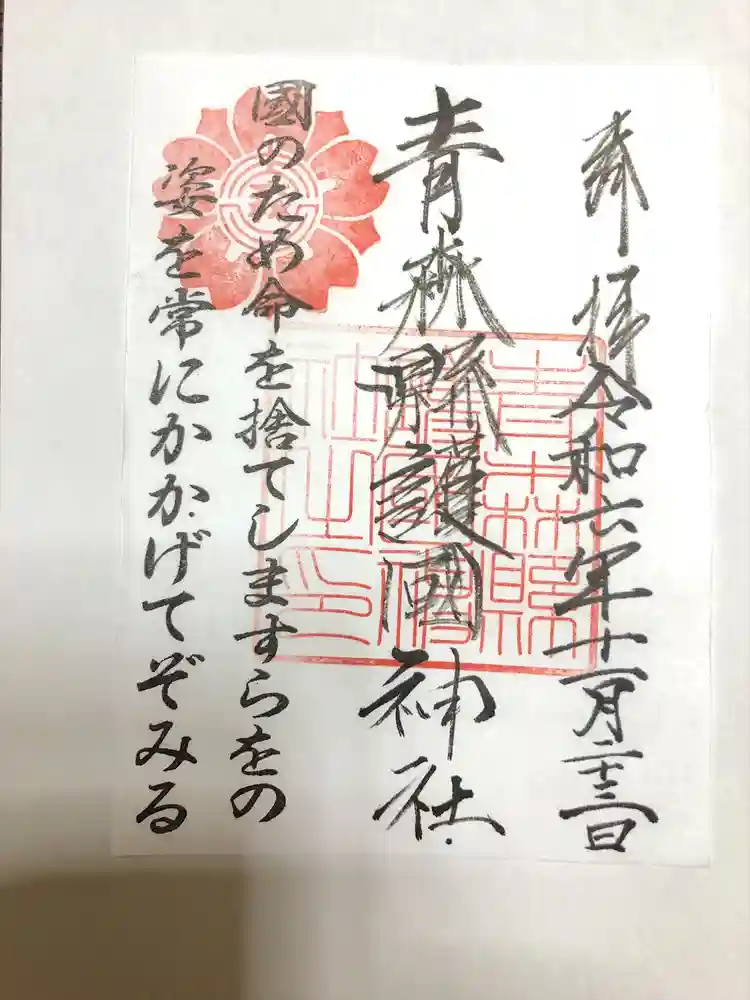 奉拝 令和六年十一月二十三日
青森縣護國神社
國のため命を捨てしますらをの
姿を常にかかげてぞみる
青森縣護國神社之印